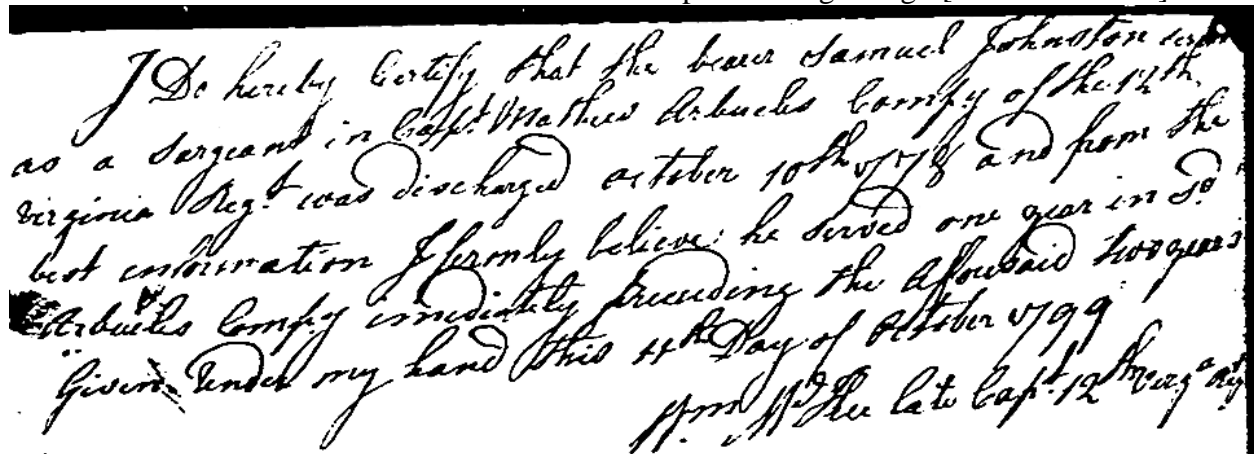 I Do hereby Certify that the bearer Samuel Johnston
as a Sargeant in Capt. Mathew Arbuckls Compy of the 12th
virginia Regt. was discharged october 10th 1778 and from the
best information I firmly believe he served one year in Sd.
Arbuckls Compy imediately Preceeding the Aforesaid two years
Given Under my hand this 4th Day of October 1799
Wm McKee late Capt. 12th Verga Regt